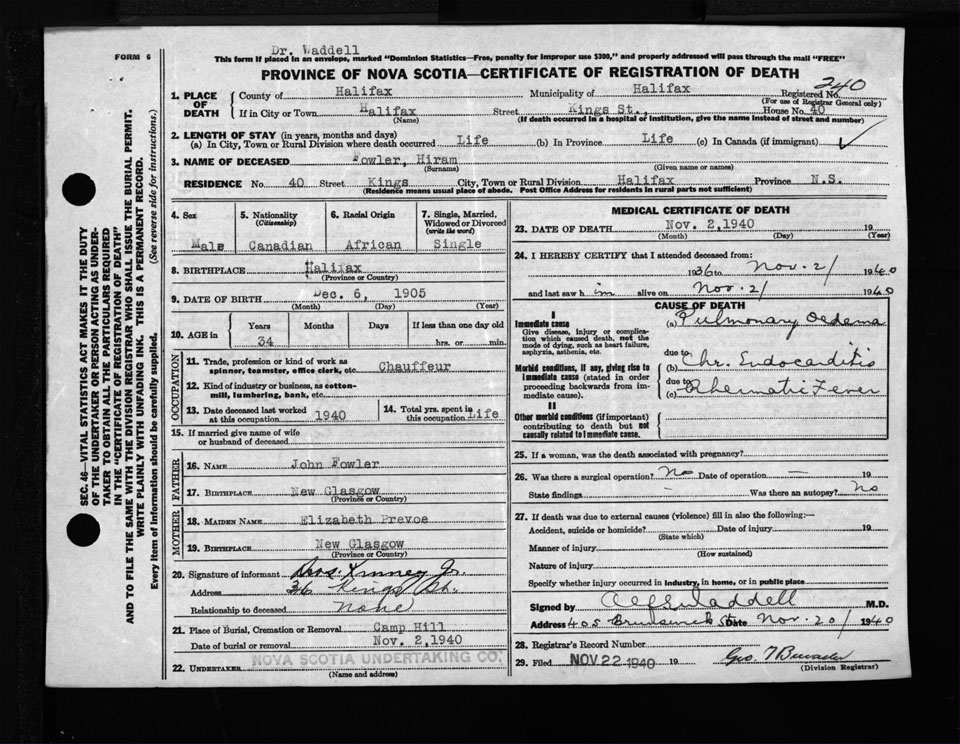 Dr. Waddell
FORM 6
This form if placed in an envelope, marked "Dominion Statistics—Free, penalty for improper use $300," and properly addressed will pass through the mail "FREE"
PROVINCE OF NOVA SCOTIA—CERTIFICATE OF REGISTRATION OF DEATH
SEC. 46—VITAL STATISTICS ACT MAKES IT THE DUTY
OF THE UNDERTAKER OR PERSON ACTING AS UNDER-
TAKER TO OBTAIN ALL THE PARTICULARS REQUIRED
IN THE "CERTIFICATE OF REGISTRATION OF DEATH"
AND TO FILE THE SAME WITH THE DIVISION REGISTRAR WHO SHALL ISSUE THE BURIAL PERMIT.
WRITE PLAINLY WITH UNFADING INK. THIS IS A PERMANENT RECORD.
Every item of information should be carefully supplied. (See reverse side for instructions.)
1. PLACE OF DEATH County of Halifax Municipality of Halifax Registered No. 240
(For use of Registrar General only)
If in City or Town Halifax Street Kings St., House No. 40
(Name) (If death occurred in a hospital or institution, give the name instead of street and number)
2. LENGTH OF STAY (in years, months and days)
(a) In City, Town or Rural Division where death occurred Life (b) In Province Life (c) In Canada (if immigrant) ✓
3. NAME OF DECEASED Fowler, Hiram
(Surname) (Given name or names)
RESIDENCE No. 40 Street Kings City, Town or Rural Division Halifax Province N.S.
(Residence means usual place of abode. Post Office Address for residents in rural parts not sufficient)
4. Sex 5. Nationality (Citizenship) 6. Racial Origin 7. Single, Married, Widowed or Divorced (write the word)
Male Canadian African Single
8. BIRTHPLACE Halifax
(Province or Country)
9. DATE OF BIRTH Dec. 6, 1905
(Month) (Day) (Year)
10. AGE in Years Months Days If less than one day old
34 hrs. or min.
OCCUPATION
11. Trade, profession or kind of work as
spinner, teamster, office clerk, etc. Chauffeur
12. Kind of industry or business, as cotton-
mill, lumbering, bank, etc.
13. Date deceased last worked
at this occupation 1940
14. Total yrs. spent in
this occupation Life
15. If married give name of wife
or husband of deceased
FATHER
16. NAME John Fowler
17. BIRTHPLACE New Glasgow
(Province or Country)
MOTHER
18. MAIDEN NAME Elizabeth Prevoe
19. BIRTHPLACE New Glasgow
(Province or Country)
20. Signature of informant Kinney Jr.
Address 36 Kings St.
Relationship to deceased None
21. Place of Burial, Cremation or Removal Camp Hill
Date of burial or removal Nov. 2, 1940
22. UNDERTAKER NOVA SCOTIA UNDERTAKING CO.
(Name and address)
MEDICAL CERTIFICATE OF DEATH
23. DATE OF DEATH Nov. 2, 1940 19
(Month) (Day) (Year)
24. I HEREBY CERTIFY that I attended deceased from:
1936 to Nov. 2/ 1940
and last saw h im alive on Nov. 2/ 1940
CAUSE OF DEATH
I
Immediate cause
Give disease, injury or complica-
tion which caused death, not the
mode of dying, such as heart failure,
asphyxia, asthenia, etc.
(a) Pulmonary Oedema
due to
Morbid conditions, if any, giving rise to
immediate cause (stated in order
proceeding backwards from im-
mediate cause).
(b) Chr. Endocarditis
due to
(c) Rhematic Fever
II
Other morbid conditions (if important)
contributing to death but not
causally related to immediate cause.
25. If a woman, was the death associated with pregnancy?
26. Was there a surgical operation? No Date of operation — 19
State findings — Was there an autopsy? No
27. If death was due to external causes (violence) fill in also the following:—
Accident, suicide or homicide? Date of injury 19
(State which)
Manner of injury
(How sustained)
Nature of injury
Specify whether injury occurred in industry, in home, or in public place
Signed by Waddell M.D.
Address 405 Brunswick St Date Nov. 20/ 1940
28. Registrar's Record Number
29. Filed NOV 22 1940 19 Geo. T
(Division Registrar)